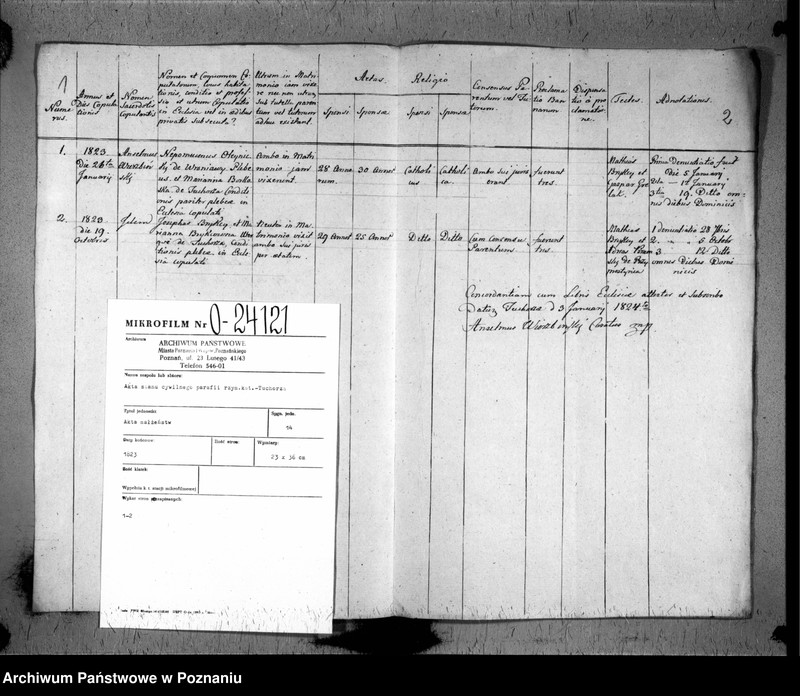 1
Nume
rus.
Annus et
Dies Copula
tionis
Nomen
Sacerdotis
Copulantis
Nomen et Cognomen Co
pulatorum, locus habita
tionis, conditio et profes
sio et utrum Copulatio
in Ecclesia vel in aedibus
privatis subsecuta?
Utrum in Matri
monio iam vixe
re nec non utrum
sub tutella paren
tum vel tutorum
adhuc existant.
Aetas.
Sponsi
Sponsa
Religio
Sponsi
Sponsa
Consensus Pa
rentum vel Tu
torum.
Proclama
tio Ban
norum
Dispensa
tio a pro
clamatio
ne.
Testes.
Adnotationes.
2
1.
1823
Die 26ta
Januarij
Anselmus
Nepomucenus
et Marianna
de Tuchorza Condit
ionis pariter plebeae in
Ecclesia copulati
Ambo in Matri
monio jam
vixerunt.
28 Anno
rum.
30 Annor
Catholi
cus
Catholi
ca.
Ambo sui juris
erant.
fuerunt
tres.
Mathias
Brykley et
Gaspar
Prima Denuntiatio fuit
Die 5 Januarij
2da — 12 Januarij
3tia 19. Ditto om
nes diebus Dominicis
2.
1823
die 19.
Octobris
Josephus Brykley et Ma
rianna Brykowna
de Tuchorza, Cond
itionis plebeae in Eccle
sia copulati
Neuter in Ma
trimonio vixit
ambo sui juris
per aetatem.
29 Annor
25 Annor
Ditto
Ditto
Cum Consensu
Parentum.
fuerunt
tres
Mathias
Brykley et
1 denuntiatio 28 7bris
2. — 5 Octob
3 12 Ditto
omnes Diebus Domi
nicis
Concordantiam cum Libris Ecclesiae attestor et subscribo
Datum Tuchorza d 3 Januarij 1824
Anselmus Curatus
MIKROFILM Nr O-24121
Archiwum
ARCHIWUM PAŃSTWOWE
Miasta Poznania i Wojew. Poznańskiego
Poznań, ul. 23 Lutego 41/43
Telefon 546-01
Nazwa zespołu lub zbioru:
Akta stanu cywilnego parafii rzym.kat.-Tuchorza
Tytuł jednostki
Akta małżeństw
Sygn. jedn.
14
Daty krańcowe:
1823
Ilość stron:
Wymiary:
23 x 36 cm
Ilość klatek:
Wypełnia k r. stacji mikrofilmowej
1-2
Archiwum Państwowe w Poznaniu